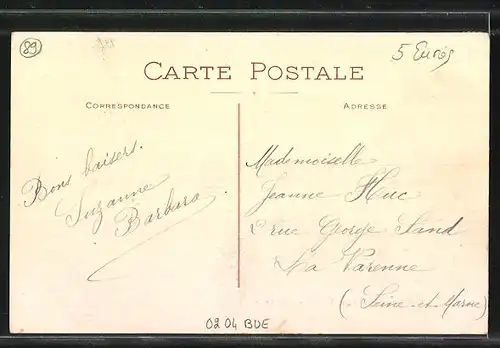 89
5 Euros
CARTE POSTALE
CORRESPONDANCE
ADRESSE
Bons baisers.
Suzanne
Barbara
Mademoiselle
Jeanne Huc
2 rue George Sand
La Varenne
(Seine-et-Marne)
0204 BDE